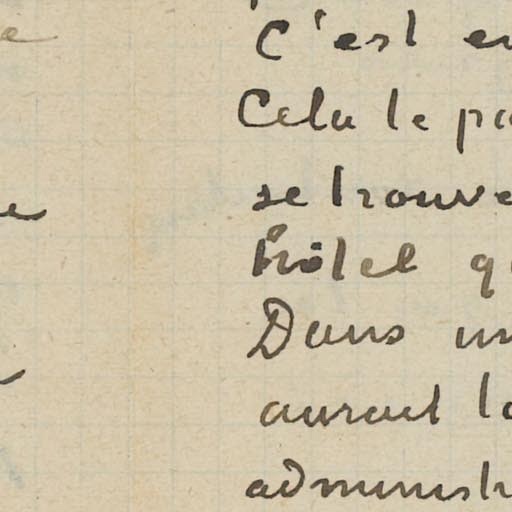 C'est en
Cela le pa
se trouve
hôtel qu
Dans un
aurait la
administr